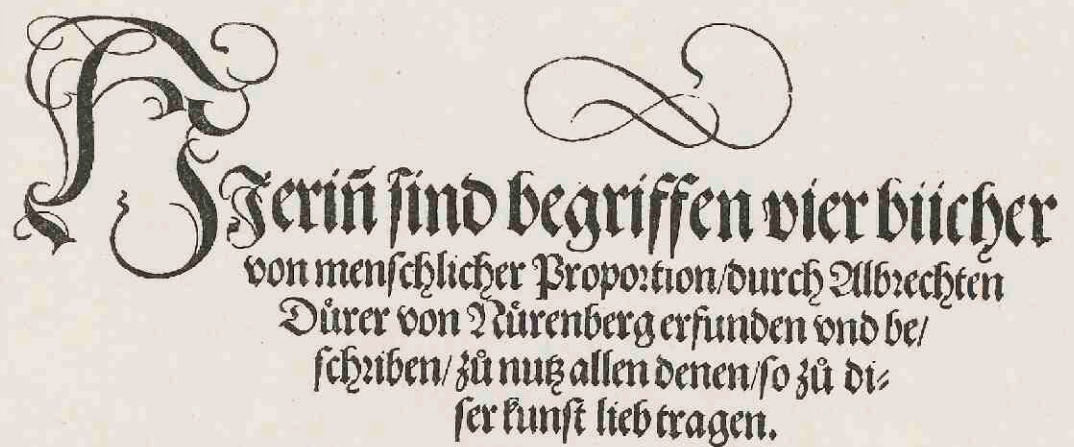 HJerin̄ sind begriffen vier bücher
von menschlicher Proportion/durch Albrechten
Důrer von Nůrenberg erfunden vnd be/
schriben/zů nutz allen denen/so zů di⸗
ser kunst lieb tragen.